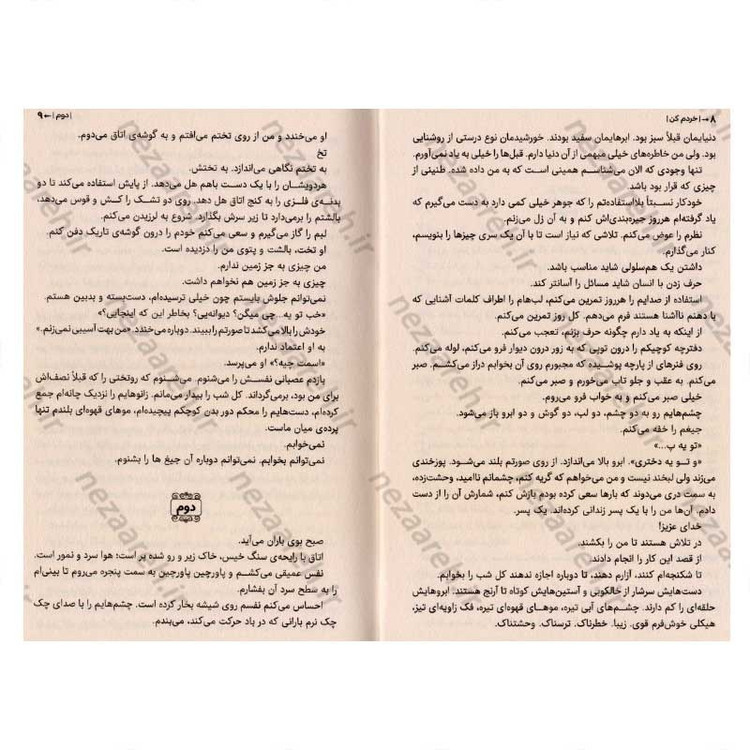 ۸ ←| خردم کن |
دنیایمان قبلاً سبز بود. ابرهایمان سفید بودند. خورشیدمان نوع درستی از روشنایی
بود. ولی من خاطره‌های خیلی مبهمی از آن دنیا دارم. قبل‌ها را خیلی به یاد نمی‌آورم.
تنها وجودی که الان می‌شناسم همینی است که به من داده شده. طنینی از
چیزی که قرار بود باشد.
خودکار نسبتاً بلااستفاده‌ام را که جوهر خیلی کمی دارد به دست می‌گیرم که
یاد گرفته‌ام هرروز جیره‌بندی‌اش کنم و به آن زل می‌زنم.
نظرم را عوض می‌کنم. تلاشی که نیاز است تا با آن یک سری چیزها را بنویسم،
کنار می‌گذارم.
داشتن یک هم‌سلولی شاید مناسب باشد.
حرف زدن با انسان شاید مسائل را آسانتر کند.
استفاده از صدایم را هرروز تمرین می‌کنم، لب‌هام را اطراف کلمات آشنایی که
با دهنم ناآشنا هستند فرم می‌دهم. کل روز تمرین می‌کنم.
از اینکه به یاد دارم چگونه حرف بزنم، تعجب می‌کنم.
دفترچه کوچیکم را درون توپی که به زور درون دیوار فرو می‌کنم، لوله می‌کنم.
روی فنرهای از پارچه پوشیده که مجبورم روی آن بخوابم دراز می‌کشم. صبر
می‌کنم. به عقب و جلو تاب می‌خورم و صبر می‌کنم.
خیلی صبر می‌کنم و به خواب فرو می‌روم.
چشم‌هایم رو به دو چشم، دو لب، دو گوش و دو ابرو باز می‌شود.
جیغم را خفه می‌کنم.
«تو یه پ...»
«و تـو یه دختری». ابرو بالا می‌اندازد. از روی صورتم بلند می‌شود. پوزخندی
می‌زند ولی لبخند نیست و من می‌خواهم که گریه کنم، چشمانم ناامید، وحشت‌زده،
به سمت دری می‌دوند که بارها سعی کرده بودم بازش کنم، شمارش آن را از دست
داده‌م. آن‌ها من را با یک پسر زندانی کرده‌اند. یک پسر.
خدای عزیز!
در تلاش هستند تا من را بکشند.
از قصد این کار را انجام دادند.
تا شکنجه‌ام کنند، آزارم دهند، تا دوباره اجازه ندهند کل شب را بخوابم.
دست‌هایش سرشار از خالکوبی و آستین‌هایش کوتاه تا آرنج هستند. ابروهایش
حلقه‌ای را کم دارند. چشم‌های آبی تیره، موهای قهوه‌ای تیره، فک زاویه‌ای تیز،
هیکلی خوش‌فرم قوی. زیبا. خطرناک. ترسناک. وحشتناک.
| دوم |← ۹
او می‌خندد و من از روی تختم می‌افتم و به گوشه‌ی اتاق می‌دوم.
تخ
به تختم نگاهی می‌اندازد. به تختش.
هردویشان را با یک دست باهم هل می‌دهد. از پایش استفاده می‌کند تا دو
بدنه‌ی فلزی را به کنج اتاق هل دهد. روی دو تشک را کش و قوس می‌دهد،
بالشتم را برمی‌دارد تا زیر سرش بگذارد. شروع به لرزیدن می‌کنم.
لبم را گاز می‌گیرم و سعی می‌کنم خودم را درون گوشه‌ی تاریک دفن کنم.
او تخت، بالشت و پتوی من را دزدیده است.
من چیزی به جز زمین ندارم.
چیزی به جز زمین هم نخواهم داشت.
نمی‌توانم جلوش بایستم چون خیلی ترسیده‌ام، دست‌بسته و بدبین هستم.
«خب تو یه... چی میگن؟ دیوانه‌یی؟ بخاطر این که اینجایی؟»
خودش را بالا می‌کشد تا صورتم را ببیند. دوباره می‌خندد. «من بهت آسیبی نمی‌زنم.»
به او اعتماد ندارم.
«اسمت چیه؟» او می‌پرسد.
بازدم عصبانی نفسش را می‌شنوم. می‌شنوم که روتختی را که قبلاً نصف‌اش
برای من بود، برمی‌گرداند. کل شب را بیدار می‌مانم. زانوهایم را نزدیک چانه‌ام جمع
کرده‌ام، دست‌هایم را محکم دور بدن کوچکم پیچیده‌ام، موهای قهوه‌ای بلندم تنها
پرده‌ی میان ماست.
نمی‌خوابم.
نمی‌توانم بخوابم. نمی‌توانم دوباره آن جیغ ها را بشنوم.
دوم
صبح بوی باران می‌آید.
اتاق با رایحه‌ی سنگ خیس، خاک زیر و رو شده پر است؛ هوا سرد و نمور است.
نفس عمیقی می‌کشم و پاورچین پاورچین به سمت پنجره می‌روم تا بینی‌ام
را به سطح سرد آن بفشارم.
احساس می‌کنم نفسم روی شیشه بخار کرده است. چشم‌هایم را با صدای چک
چک نرم بارانی که در باد حرکت می‌کند، می‌بندم.
nezaareh.ir